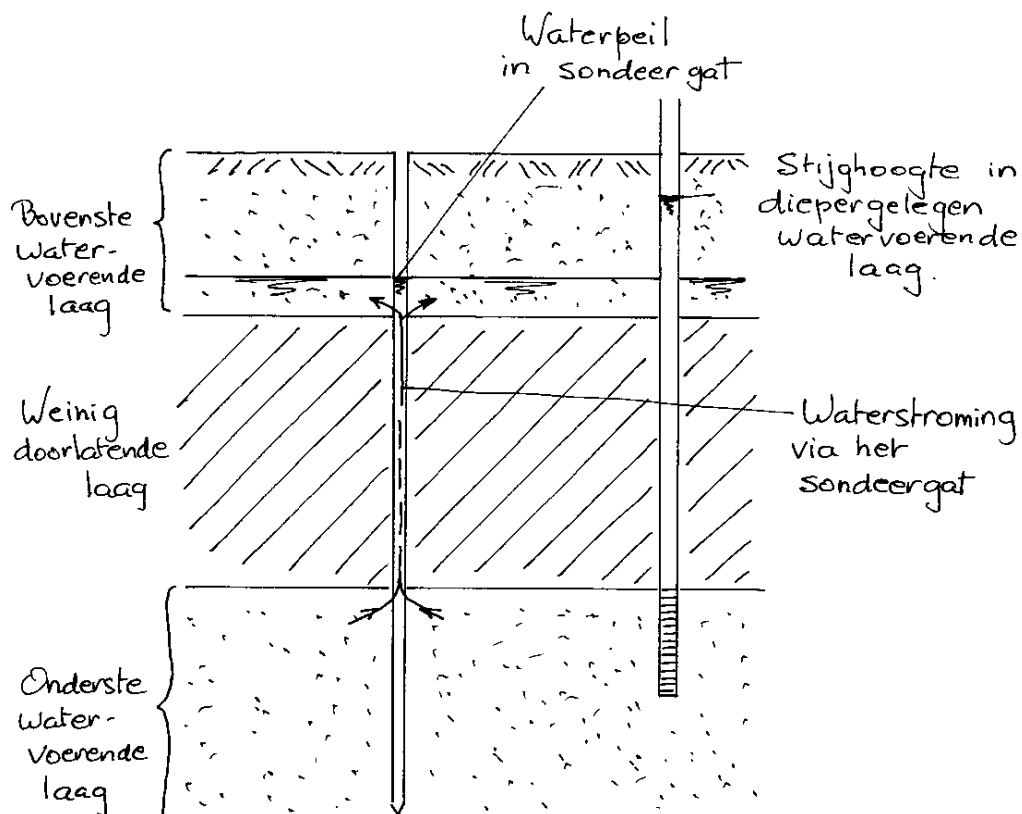 Waterpeil
in sondeergat
Bovenste
water-
voerende
laag
Stijghoogte in
diepergelegen
watervoerende
laag.
Weinig
doorlatende
laag
Waterstroming
via het
sondeergat
Onderste
water-
voerende
laag